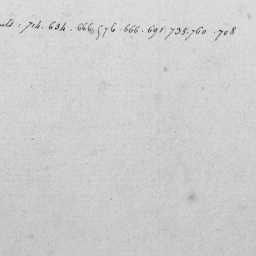 714. 634. 666. 576. 666. 691. 735. 760. 708